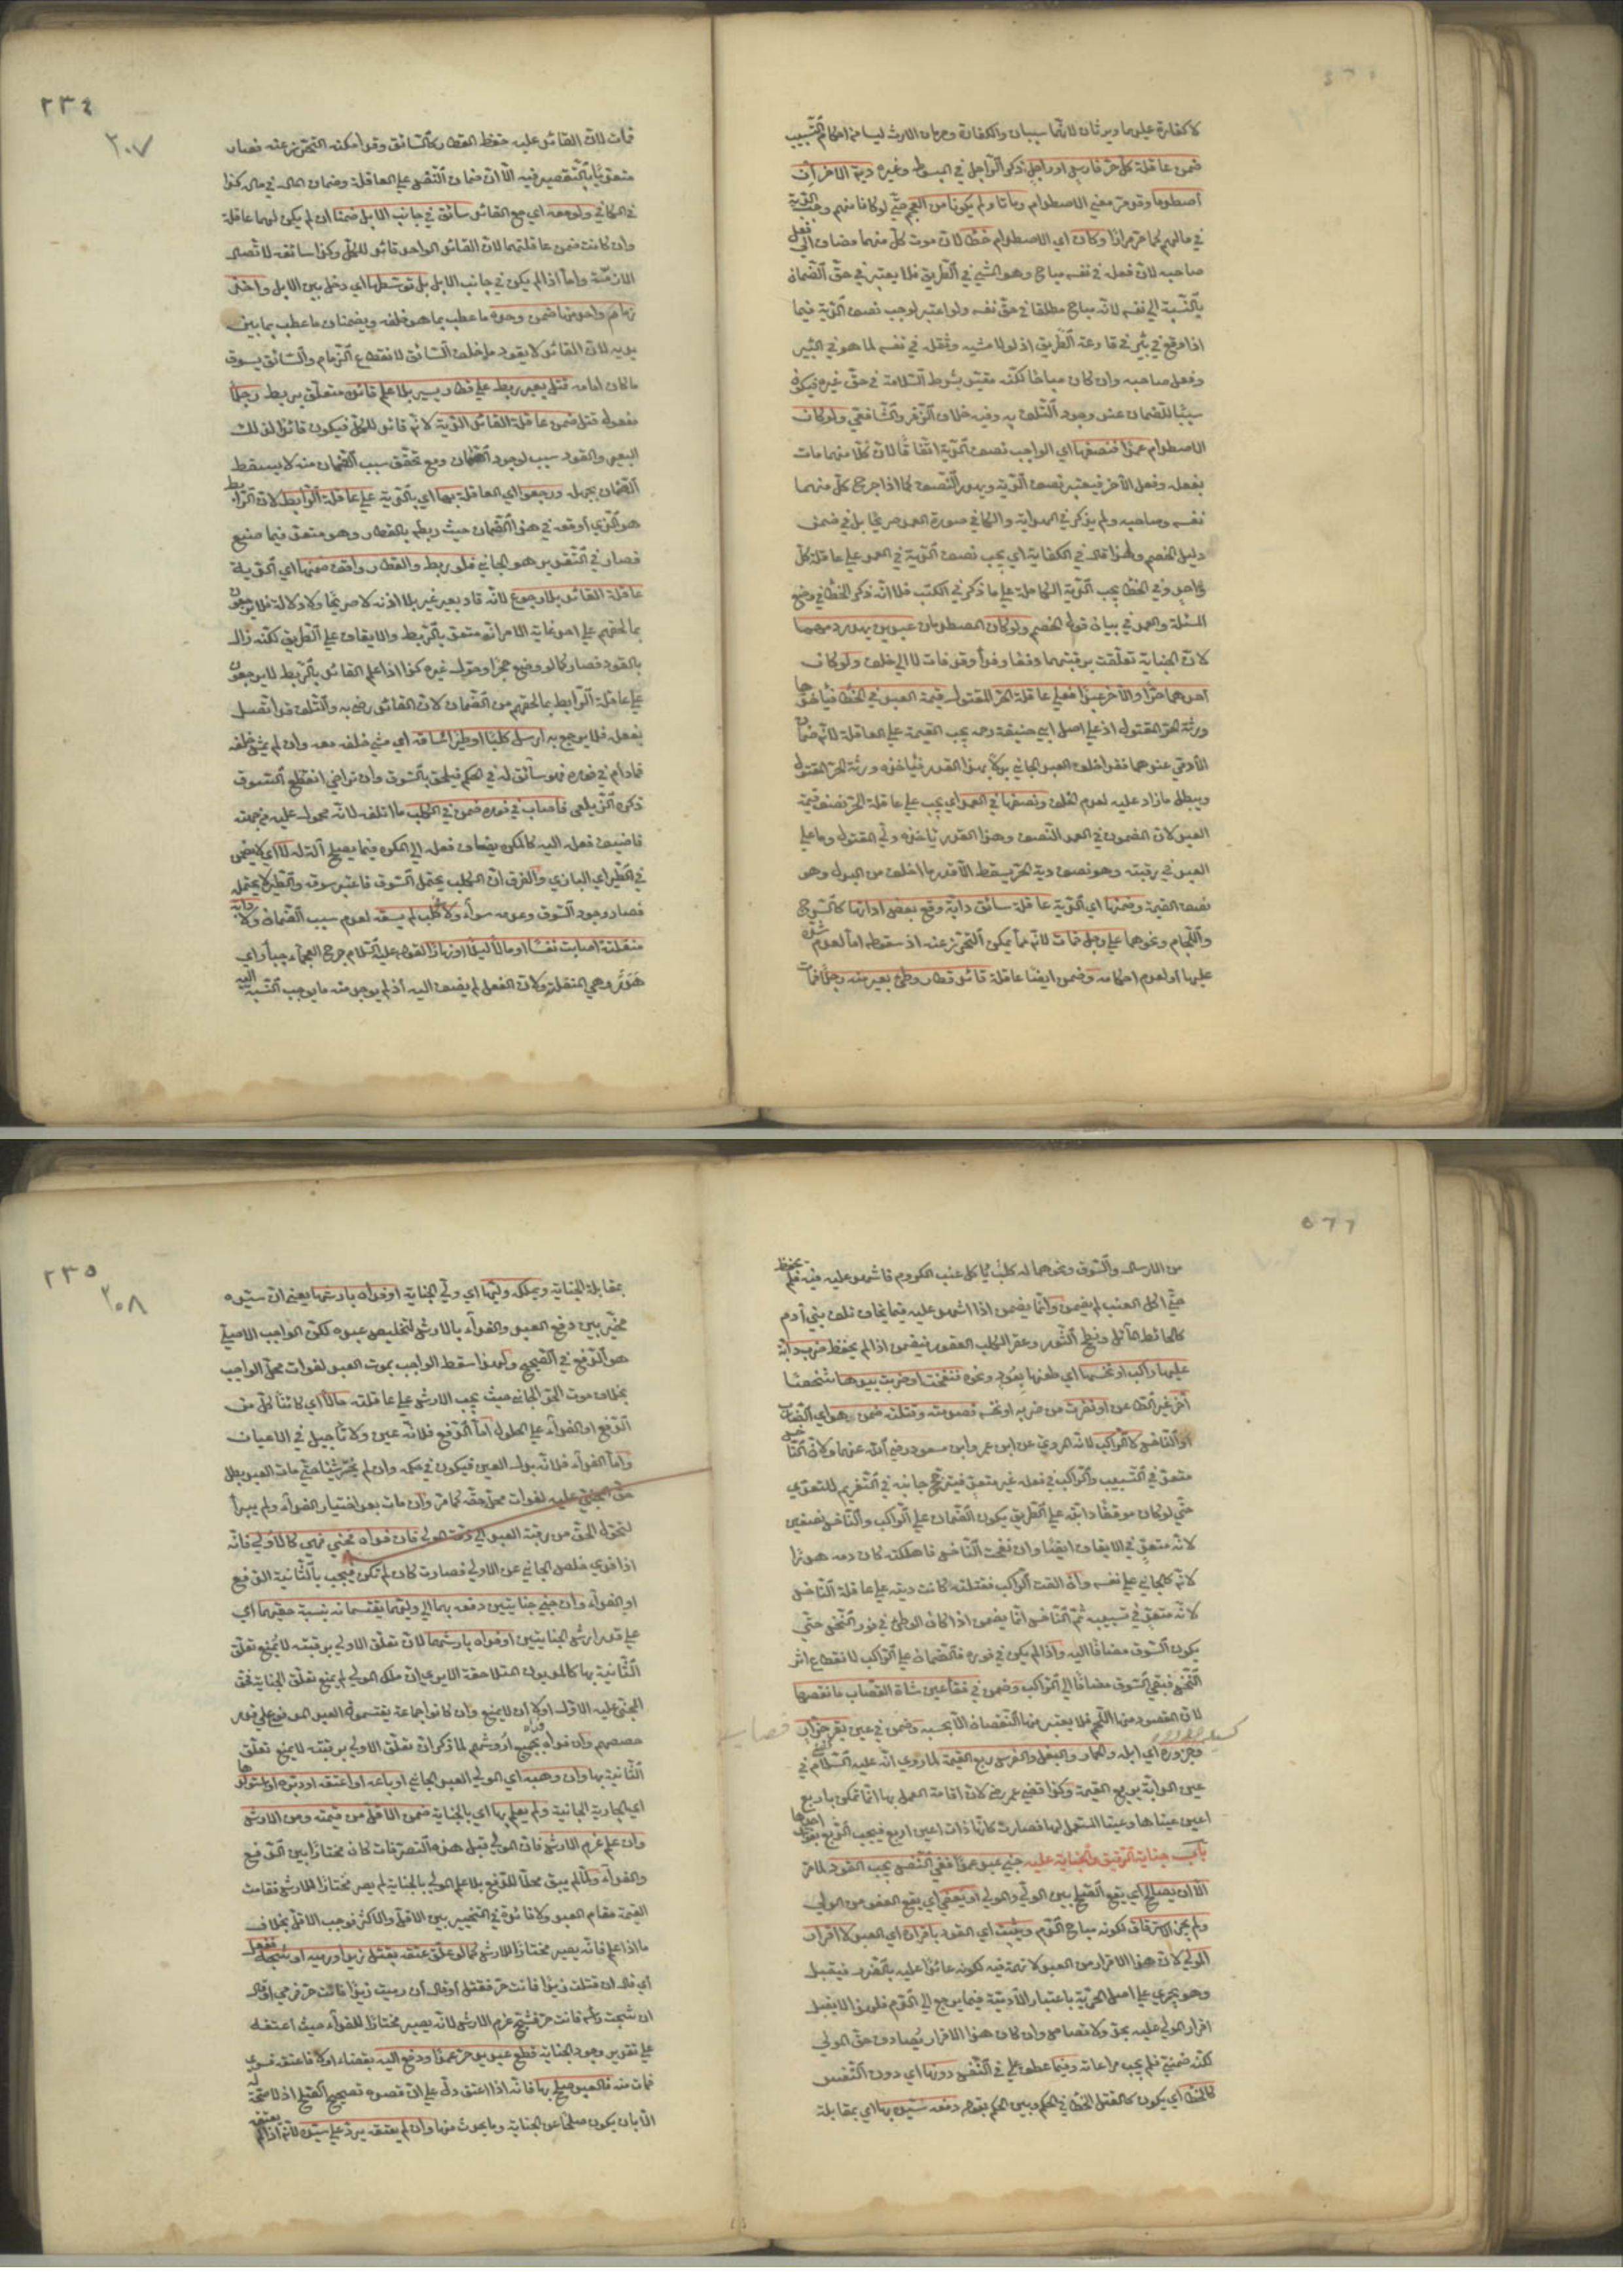 لا كفارة عليهما ويرثان لانهما سببان والكفارة وحرمان الارث ليسا من احكام التسبيب
ضمن عاقلة كل حر فارس او راجل ذكر الراجل في المبسوط وغيره دية الاخر ان
اصطدما وقد مر معنى الاصطدام وماتا ولم يكونا من العجم حتى لو كانا منهم وجب الدية
في مالهم كما مر مرارا وكان اي الاصطدام خطأ لان موت كل منهما مضاف الى فعل
صاحبه لان فعله في نفسه مباح وهو المشي في الطريق فلا يعتبر في حق الضمان
بالنسبة الى نفسه لانه مباح مطلقا في حق نفسه ولو اعتبر لوجب نصف الدية فيما
اذا وقع في بئر في قارعة الطريق اذ لولا مشيه وثقله في نفسه لما هوى في البئر
وفعل صاحبه وان كان مباحا لكنه مقيد بشرط السلامة في حق غيره فيكون
سببا للضمان عند وجود التلف به وفيه خلاف الزفر والشافعي ولو كان
الاصطدام عمدا فنصفها اي الواجب نصف الدية اتفاقا لان كلا منهما مات
بفعله وفعل الآخر فيعتبر نصف الدية ويهدر النصف كما اذا جرح كل منهما
نفسه وصاحبه ولم يذكر في الهداية والكافي صورة العمد صريحا بل في ضمن
دليل الخصم ولهذا قال في الكفاية اي يجب نصف الدية في العمد على عاقلة كل
واحد وفي الخطأ يجب الدية الكاملة على ما ذكر في الكتب فلا انه ذكر الخطأ في وضع
المسئلة والعمد في بيان قول الخصم ولو كان المصطدمان عبدين يهدر دمهما
لان الجناية تعلقت برقبتهما دفعا وفداء وقد فات لا الى خلف ولو كان
احدهما حرا والآخر عبدا فعلى عاقلة الحر المقتول قيمة العبد في الخطأ فيأخذها
ورثة الحر المقتول اذ على اصل ابي حنيفة رحمه يجب القيمة على العاقلة لانه ضمان
الآدمي عندهما فقد اخلف العبد الجاني بدلا بهذا القدر فيأخذه ورثة الحر المقتول
ويبطل ما زاد عليه لعدم الخلف ونصفها في العمد اي يجب على عاقلة الحر نصف قيمة
العبد لان المضمون في العمد النصف وهذا القدر يأخذه ولي المقتول وما على
العبد في رقبته وهو نصف دية الحر يسقط الا قدر ما اخلف من البدل وهو
نصف القيمة وضمنها اي الدية عاقلة سائق دابة وقع بعض ادواتها كالسرج
واللجام ونحوهما على رجل فمات لانه مما يمكن التحرز عنه اذ سقوطه اما لعدم شده
عليها او لعدم احكامه وضمن ايضا عاقلة قائد قطار وطئ بعير منه رجلا فمات
٢٣٤
٣٠٧
فمات لان القائد عليه حفظ القطار كالسائق وقد امكنه التحرز عنه فصار
متعديا بالتقصير فيه الا ان ضمان النفس على العاقلة وضمان المال في ماله كذا
في الكافي ولو معه اي مع القائد سائق في جانب الابل ضمنا ان لم يكن لهما عاقلة
وان كانت ضمن عاقلتهما لان القائد الواحد قائد للكل وكذا سائقه لاتصال
الازمة واما اذا لم يكن في جانب الابل بل توسطها اي دخل بين الابل واخذ
زمام واحد منها ضمن وحده ما عطب بما هو خلفه ويضمنان ما عطب بما بين
يديه لان القائد لا يقود ما خلف السائق لانقطاع الزمام والسائق يسوق
ما كان امامه قتل بعير ربط على قطار يسير بلا علم قائده متعلق بربط رجلا
مفعول قتل ضمن عاقلة القائد الدية لانه قائد للكل فيكون قائدا لذلك
البعير والقود سبب لوجود الضمان ومع تحقق سبب الضمان منه لا يسقط
الضمان بجهله ورجعوا اي العاقلة بها اي بالدية على عاقلة الرابط لان الرابط
هو الذي اوقعه في هذا الضمان حيث ربطه بالقطار وهو متعد فيما صنع
فصار في التقدير هو الجاني فلو ربط والقطار واقف ضمنها اي الدية
عاقلة القائد بلا رجوع لانه قاد بعير غير بلا اذنه لا صريحا ولا دلالة فلا يرجعون
بما لحقهم على احد غاية الامر انه متعد بالربط والايقاف على الطريق لكنه زال
بالقود فصار كما لو وضع حجرا وحوله غيره كذا اذا علم القائد بالربط لا يرجعون
على عاقلة الرابط بما لحقهم من الضمان لان القائد رضي به والتلف قد اتصل
بفعله فلا يرجع به ارسل كلبا او طيرا ساقه اي مشى خلفه معه وان لم يمش خلفه
فما دام في فوره فهو سائق له في الحكم فيلحق بالسوق وان تراخى انقطع السوق
ذكره الزيلعي فاصاب في فوره ضمن في الكلب ما اتلفه لانه محول عليه من جهته
فاضيف فعله اليه كالمكره يضاف فعله الى المكره فيما يصلح آلة له لا اي لا يضمن
في الطير اي البازي والفرق ان الكلب يحتمل السوق فاعتبر سوقه والطير لا يحتمله
فصار وجود السوق وعدمه سواء ولا كلب لم يسقه لعدم سبب الضمان ولا دابة
منفلتة اصابت نفسا او مالا ليلا او نهارا لقوله عليه السلام جرح العجماء جبار اي
هدر وهي المنفلتة ولان الفعل لم يضف اليه اذ لم يوجد منه ما يوجب النسبة اليه
٥٦٦
من الارسال والسوق ونحوهما له كلب يأكل عنب الكروم فاشهد عليه فيه فلم يحفظ
حتى اكل العنب لم يضمن وانما يضمن اذا اشهد عليه فيما يخاف تلف بني آدم
كالحائط المائل ونطح الثور وعقر الكلب العقور فيضمن اذا لم يحفظ ضرب دابة
عليها راكب او نخسها اي طعنها بعود ونحوه فنفحت او ضربت بيدها شخصا
آخر غير الطاعن او نفرت من ضربه او نخسه فصدمته وقتلته ضمن هو اي الضارب
او الناخس لا الراكب لانه المروي عن ابن عمر وابن مسعود رضي الله عنهما ولان الناخس
متعد في التسبيب والراكب في فعله غير متعد فيترجح جانبه في التغريم للتعدي
حتى لو كان موقفا دابته على الطريق يكون الضمان على الراكب والناخس نصفين
لانه متعد في الايقاف ايضا وان نفحت الناخس فاهلكته كان دمه هدرا
لانه كالجاني على نفسه وان القت الراكب فقتلته كانت ديته على عاقلة الناخس
لانه متعد في تسبيبه ثم الناخس انما يضمن اذا كان الوطئ في فور النخس حتى
يكون السوق مضافا اليه واذا لم يكن في فوره فالضمان على الراكب لانقطاع اثر
النخس فبقي السوق مضافا الى الراكب وضمن في فقأ عين شاة القصاب ما نقصها
لان المقصود منها اللحم فلا يعتبر منها النقصان الا بحسبه وضمن في عين بقر جزار
وجزوره اي ابله والحمار والبغل والفرس ربع القيمة لما روي انه عليه السلام قضى في
عين الدابة بربع القيمة وكذا قضى عمر رضي لان اقامة العمل بها انما تمكن باربع
اعين عيناها وعينا المستعمل لها فصارت كانها ذات اعين اربع فيجب الربع بفوات احدها
باب جناية الرقيق والجناية عليه جنى عبد عمدا ففي النفس يجب القود لما مر
الا ان يصالح اي يقع الصلح بين الولي والمولى او يعفى اي يقع العفو من الولي
ولم يجز استرقاق لكونه مباح الدم ويثبت اي القود باقراره اي العبد لا اقرار
المولى لان هذا الاقرار من العبد لا تهمة فيه لكونه عائدا عليه بالضرر فيقبل
وهو يجري على اصل الحرية باعتبار الآدمية فيما يرجع الى الدم فلهذا لا يقبل
اقرار المولى عليه بحق ولا قصاص وان كان هذا الاقرار يصادف حق المولى
لكنه ضمني فلم يجب مراعاته وفيما عطف على في النفس دونها اي دون النفس
كالخطأ اي يكون كالقتل الخطأ في الحكم وبين الحكم بقوله دفعه سيده بها اي بمقابلة
٢٣٥
٣٠٨
بمقابلة الجناية ويملكه وليها اي ولي الجناية او فداه بارشها يعني ان سيده
مخير بين دفع العبد والفداء بالارش لتخليص عبده لكن الواجب الاصلي
هو الدفع في الصحيح ولهذا سقط الواجب بموت العبد لفوات محل الواجب
بخلاف موت الحر الجاني حيث يجب الارش على عاقلته حالا اي كائنا كل من
الدفع او الفداء على الحلول اما الدفع فلانه عين ولا تأجيل في الاعيان
واما الفداء فلانه بدل العين فيكون في حكمه وان لم يختر شيئا حتى مات العبد بطل
حق المجني عليه لفوات محل حقه كما مر وان مات بعد اختيار الفداء لم يبرأ
لتحول الحق من رقبة العبد الى ذمة المولى فان فداه فجنى فهي كالاولى فانه
اذا فدى خلص الجاني عن الاولى فصارت كان لم تكن فيجب بالثانية الدفع
او الفداء وان جنى جنايتين دفعه بهما الى وليهما يقتسمانه بنسبة حقيهما اي
على قدر ارش الجنايتين او فداه بارشهما لان تعلق الاولى برقبته لا يمنع تعلق
الثانية بها كالديون المتلاحقة الا يرى ان ملك المولى لم يمنع تعلق الجناية فحق
المجني عليه الاول اولى ان لا يمنع وان كانوا جماعة يقتسمون العبد المدفوع على قدر
حصصهم وان فداه فداه بجميع اروشهم لما ذكر ان تعلق الاولى برقبته لا يمنع تعلق
الثانية بها وان وهبه اي المولى العبد الجاني او باعه او اعتقه او دبره او استولدها
اي الجارية الجانية ولم يعلم بها اي بالجناية ضمن الاقل من قيمته ومن الارش
وان علم غرم الارش فان المولى قبل هذه التصرفات كان مختارا بين الدفع
والفداء ولما لم يبق محلا للدفع بلا علم المولى بالجناية لم يصر مختارا للارش فقامت
القيمة مقام العبد ولا فائدة في التخيير بين الاقل والاكثر فوجب الاقل بخلاف
ما اذا علم فانه يصير مختارا للارش كما لو علق عتقه بقتل زيد او رميه او شجه ففعل
اي قال ان قتلت زيدا فانت حر فقتل او قال ان رميت زيدا فانت حر فرمى او قال
ان شججت رأسه فانت حر فشج غرم الارش لانه يصير مختارا للفداء حيث اعتقه
على تقدير وجود الجناية قطع عبد يد حر عمدا ودفع اليه بقضاء او لا فاعتقه فسرى
فمات منه فالعبد صلح بها فانه اذا اعتق دل على ان قصده تصحيح الصلح اذ لا صحة له
الا بان يكون صلحا عن الجناية وما يحدث منها وان لم يعتقه يرد على سيده لانه اذا لم يعتقه